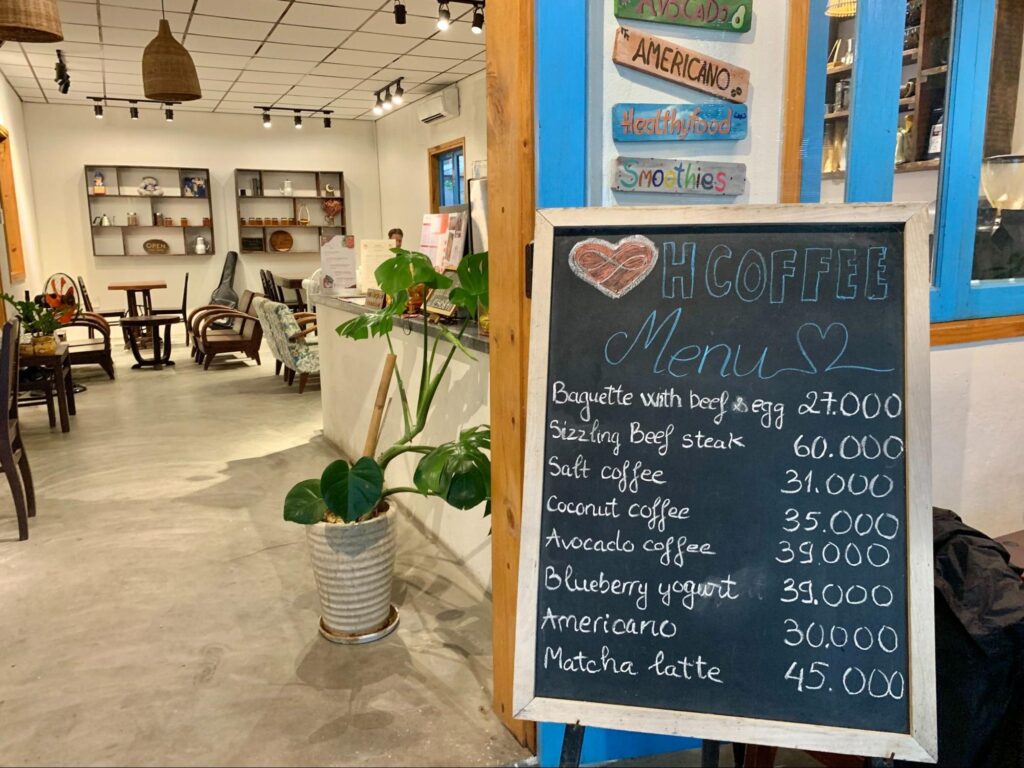 AVOCADO
AMERICANO
Healthyfood
Smoothies
H COFFEE
Menu
Baguette with beef & egg 27.000
Sizzling Beef steak 60.000
Salt coffee 31.000
Coconut coffee 35.000
Avocado coffee 39.000
Blueberry yogurt 39.000
Americano 30.000
Matcha latte 45.000
OPEN